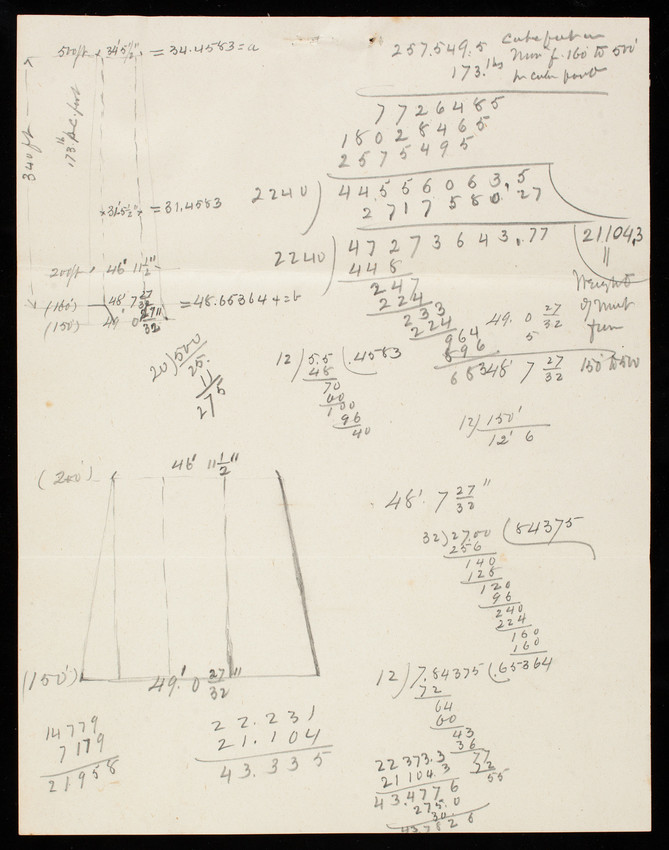 500ft 34' 5 1/2" = 34.4583 = a
340 ft
173 lb per c. foot
31' 5 1/2" = 31.4583
200ft 46' 11 1/2"
(160') 48' 7 27/32 = 48.65364 + = b
(150') 49' 0 27/32"
257.549.5 cube feet in
Mon f. 160 to 500'
173. lbs
in cube foot
7726485
18028465
2575495
2240) 44.5560 63,5
2717580.27
2240) 47273643.77 (21104,3
448
247
224
233
224
964
896
683
"
Weight
of
from
150' to 500
49. 0 27/32
5
48' 7 27/32
20) 500
25
11
275
12) 5.5 (.4583
48
70
60
100
96
40
12) 150'
12' 6
(200') 46' 11 1/2"
(150') 49.' 0 27/32"
48'. 7 27/32"
32) 27.00 (84375
256
140
128
120
96
240
224
160
160
12) 7.84375 (.65364
72
64
60
43
36
77
72
55
14779
7179
21958
22.231
21.104
43.335
22373.3
21104.3
43.4776
275.0
30.
43782 6